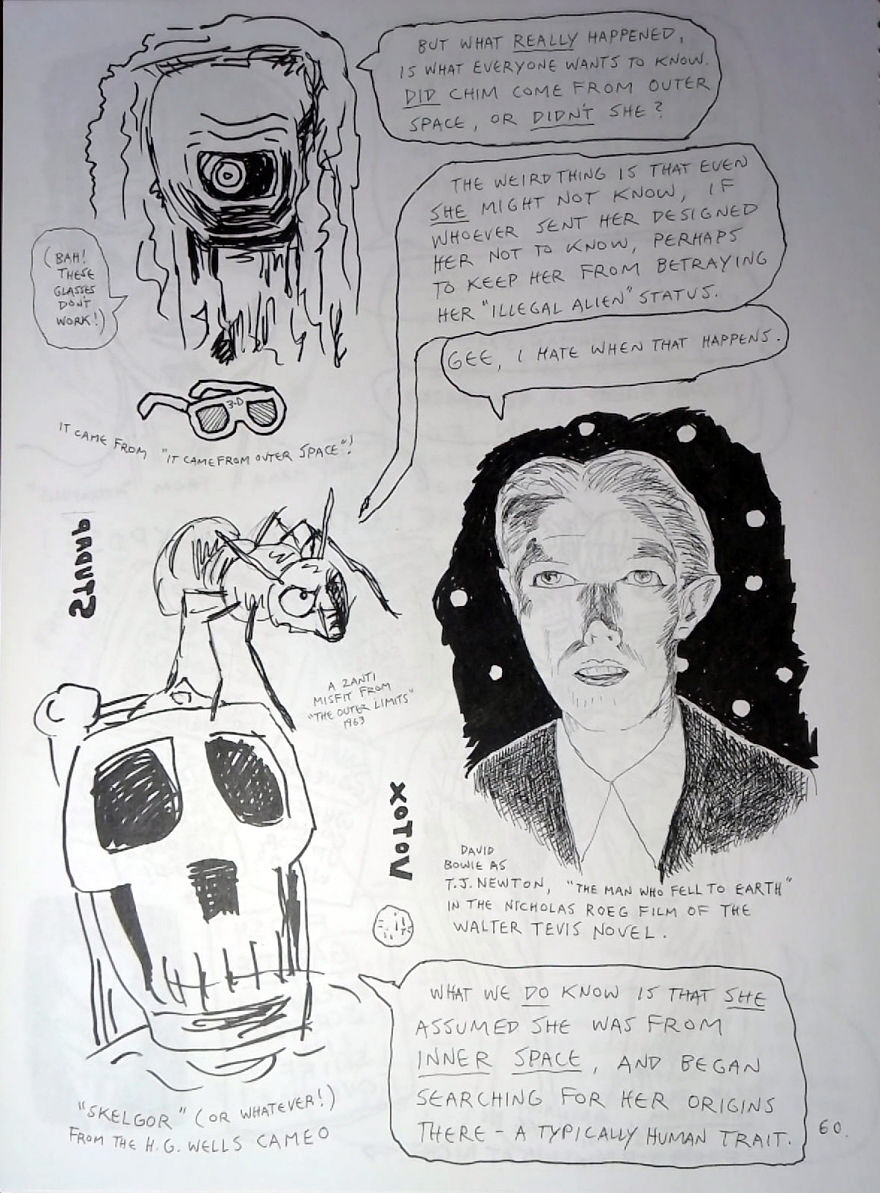 BUT WHAT REALLY HAPPENED,
IS WHAT EVERYONE WANTS TO KNOW.
DID CHIM COME FROM OUTER
SPACE, OR DIDN'T SHE?
THE WEIRD THING IS THAT EVEN
SHE MIGHT NOT KNOW, IF
WHOEVER SENT HER DESIGNED
HER NOT TO KNOW, PERHAPS
TO KEEP HER FROM BETRAYING
HER "ILLEGAL ALIEN" STATUS.
(BAH!
THESE
GLASSES
DON'T
WORK!)
GEE, I HATE WHEN THAT HAPPENS.
3-D
IT CAME FROM "IT CAME FROM OUTER SPACE"!
A ZANTI
MISFIT FROM
"THE OUTER LIMITS"
1963
VOTOX
DAVID
BOWIE AS
T.J. NEWTON, "THE MAN WHO FELL TO EARTH"
IN THE NICHOLAS ROEG FILM OF THE
WALTER TEVIS NOVEL.
WHAT WE DO KNOW IS THAT SHE
ASSUMED SHE WAS FROM
INNER SPACE, AND BEGAN
SEARCHING FOR HER ORIGINS
THERE - A TYPICALLY HUMAN TRAIT.
"SKELGOR" (OR WHATEVER!)
FROM THE H.G. WELLS CAMEO
60.